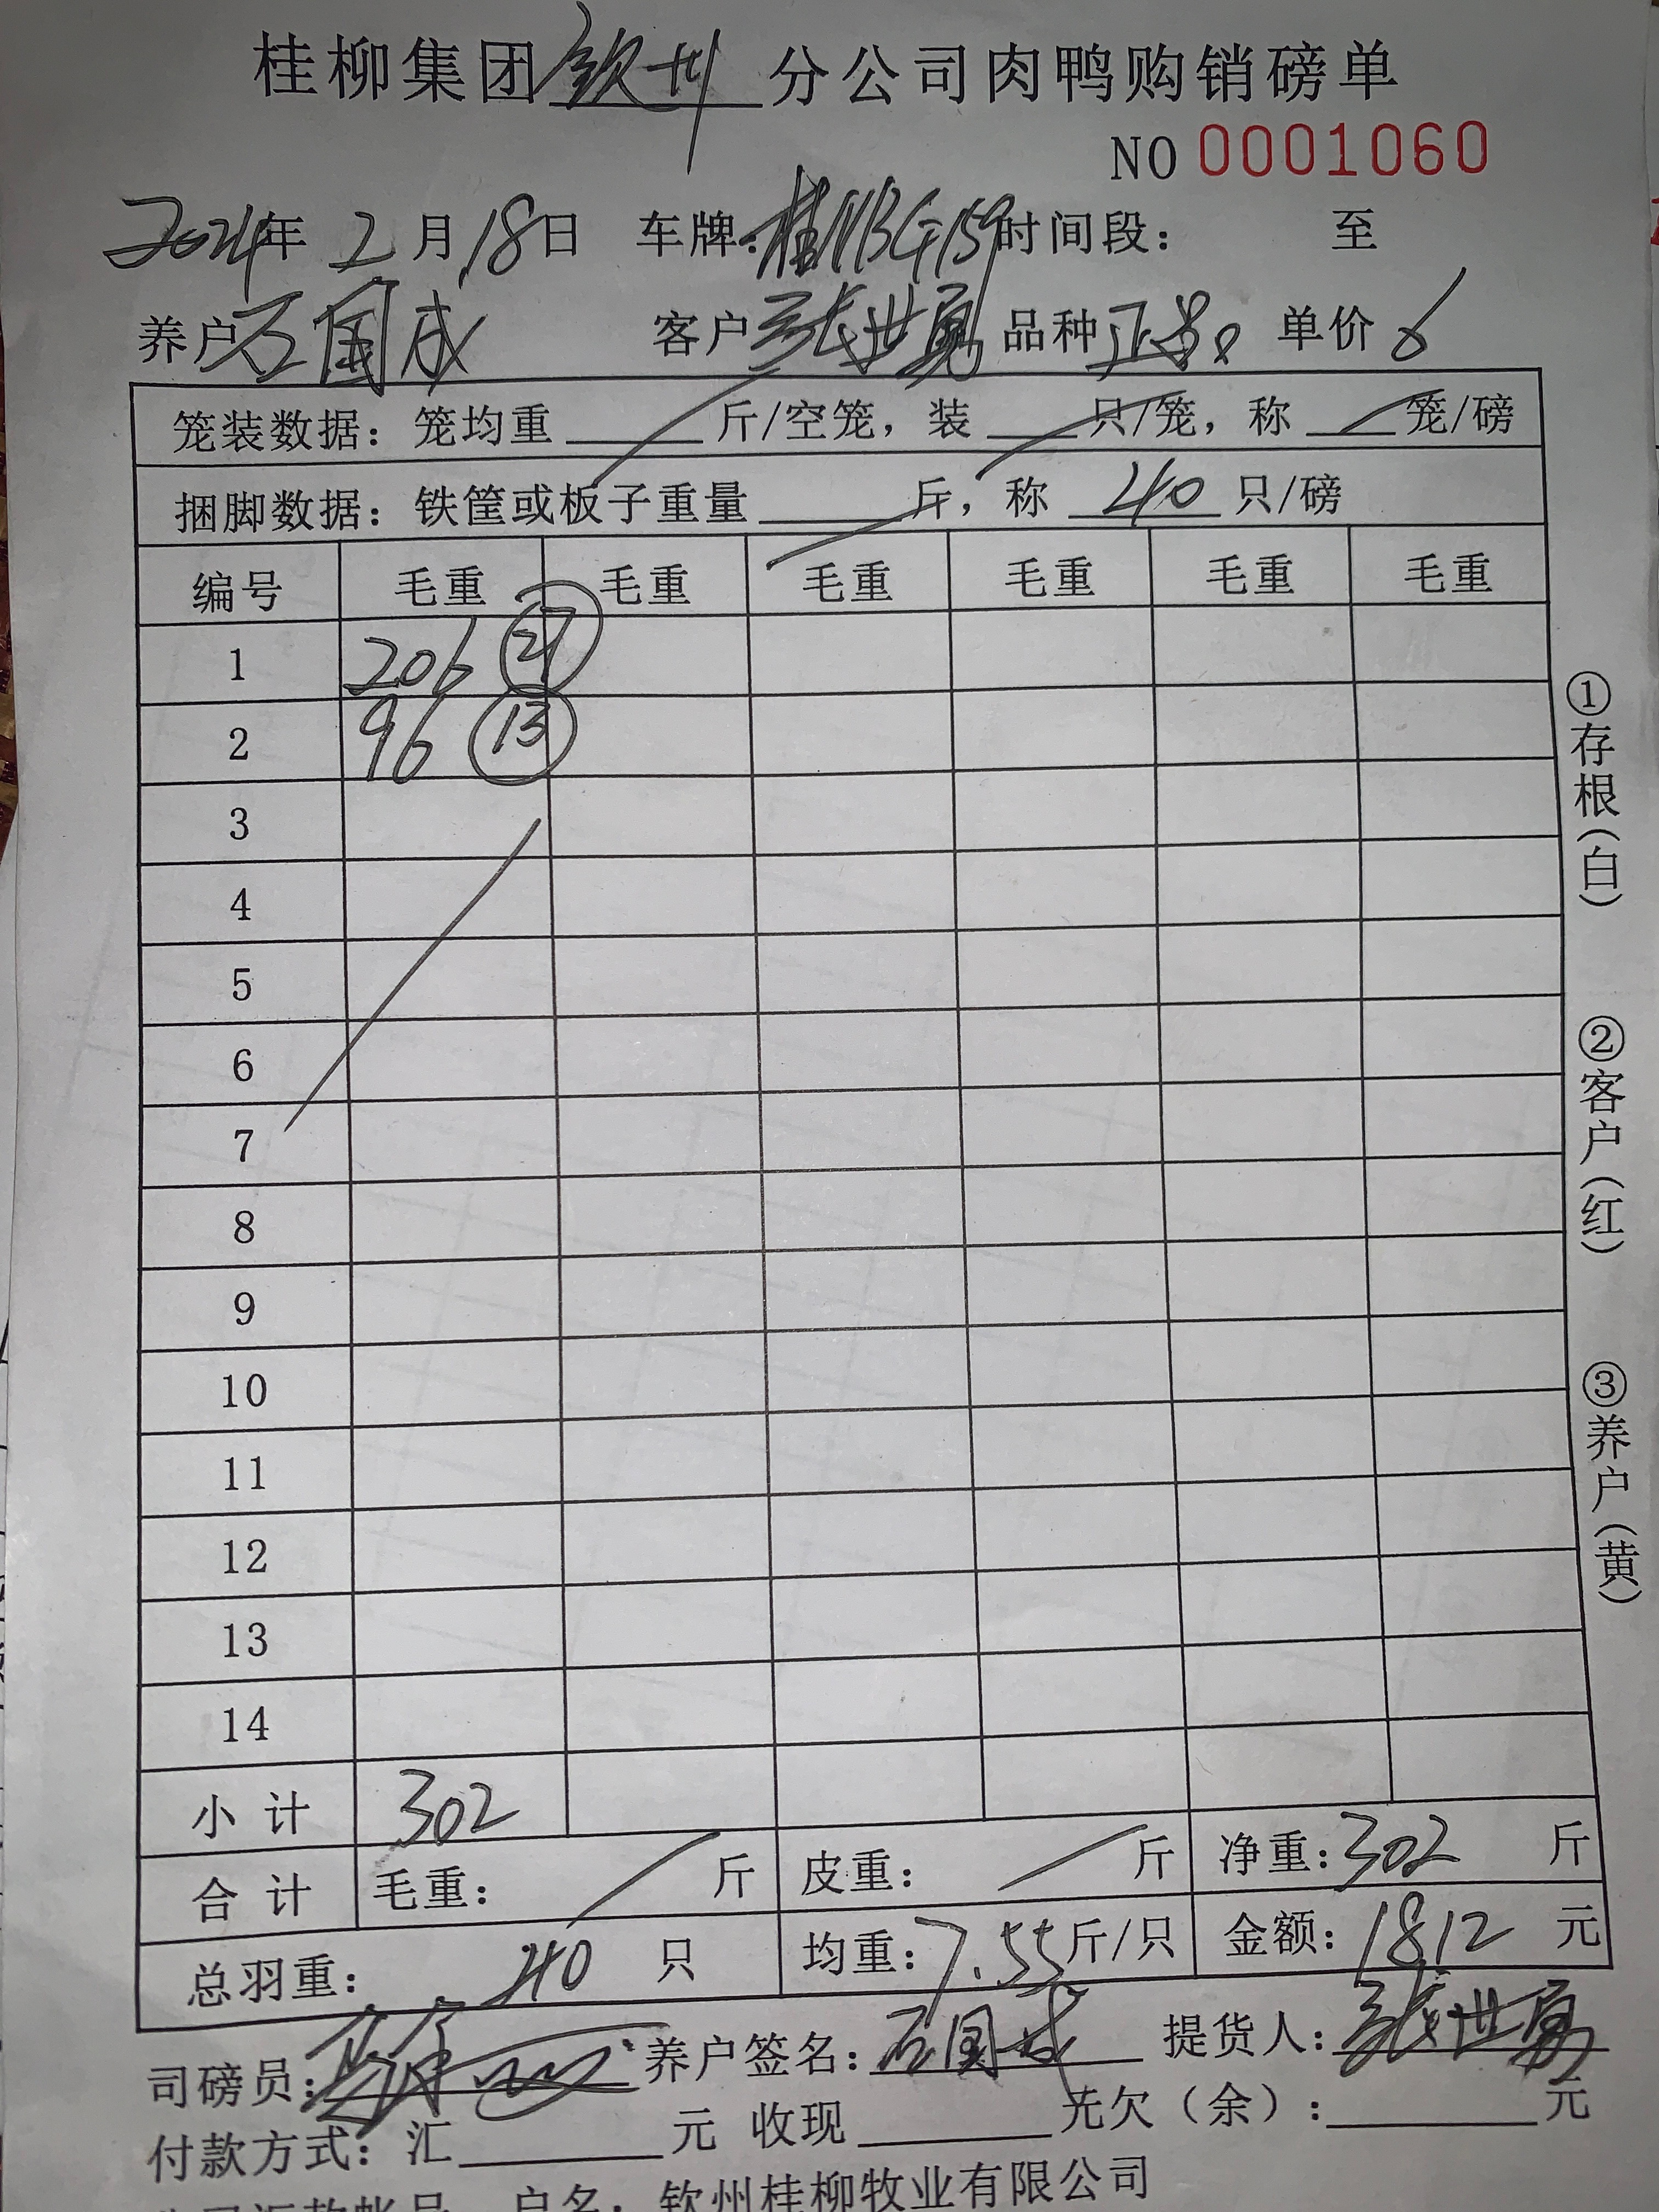 桂柳集团钦州分公司肉鸭购销磅单
NO 0001060
2024年2月18日 车牌:桂NBG159时间段: 至
养户石国成 客户张世勇 品种正常 单价6
笼装数据: 笼均重 斤/空笼, 装 只/笼, 称 笼/磅
捆脚数据: 铁筐或板子重量 斤, 称 40 只/磅
编号 毛重 毛重 毛重 毛重 毛重 毛重
1 206 27
2 96 13
3
4
5
6
7
8
9
10
11
12
13
14
小计 302
合计 毛重: 斤 皮重: 斤 净重:302 斤
总羽重: 40 只 均重:7.55斤/只 金额:1812 元
司磅员: 养户签名:石国成 提货人:张世勇
付款方式: 汇 元 收现 先欠(余): 元
户名: 钦州桂柳牧业有限公司
①存根(白)
②客户(红)
③养户(黄)